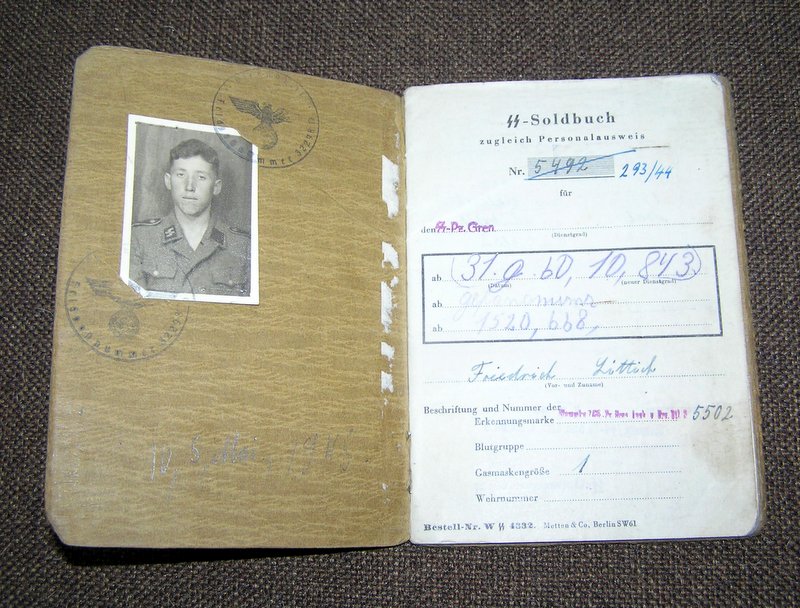 Feldpostnummer
Feldpostnummer
ϟϟ-Soldbuch
zugleich Personalausweis
Nr. 5492 293/44
für
den ϟϟ-Pz. Gren
(Dienstgrad)
ab (31.a 60, 10, 843)
(Datum) (neuer Dienstgrad)
ab
ab 1520, 668,
Friedrich Littich
(Vor- und Zuname)
Beschriftung und Nummer der
Erkennungsmarke 5502
Blutgruppe
Gasmaskengröße 1
Wehrnummer
Bestell-Nr. W ϟϟ 4332. Metten & Co, Berlin SW61